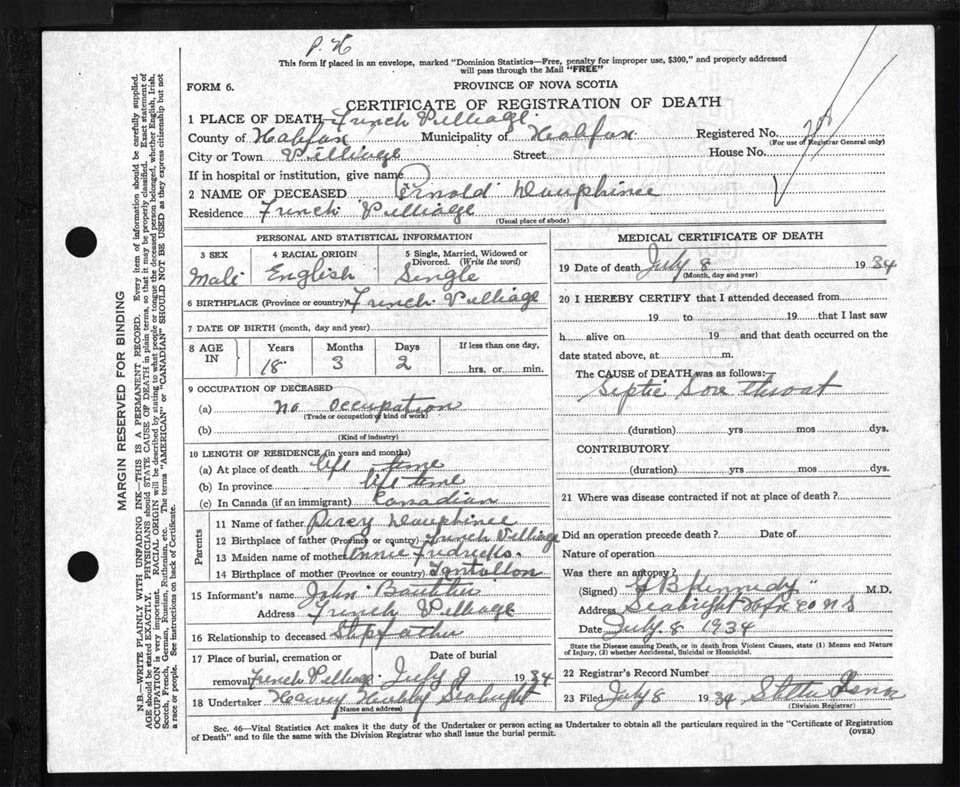 P. H
This form if placed in an envelope, marked "Dominion Statistics—Free, penalty for improper use, $300," and properly addressed
will pass through the Mail "FREE"
FORM 6.
PROVINCE OF NOVA SCOTIA
CERTIFICATE OF REGISTRATION OF DEATH
1 PLACE OF DEATH French Villiage
County of Halifax Municipality of Halifax Registered No.
(For use of Registrar General only)
City or Town Villiage Street House No.
If in hospital or institution, give name
2 NAME OF DECEASED Arnold Dauphinee
Residence French Villiage
(Usual place of abode)
PERSONAL AND STATISTICAL INFORMATION
3 SEX 4 RACIAL ORIGIN 5 Single, Married, Widowed or Divorced. (Write the word)
Male English Single
6 BIRTHPLACE (Province or country) French Villiage
7 DATE OF BIRTH (month, day and year)
8 AGE IN Years Months Days If less than one day,
18 3 2 hrs. or min.
9 OCCUPATION OF DECEASED
(a) no occupation
(Trade or occupation or kind of work)
(b)
(Kind of industry)
10 LENGTH OF RESIDENCE (in years and months)
(a) At place of death life time
(b) In province life time
(c) In Canada (if an immigrant) Canadian
Parents
11 Name of father Percy Dauphinee
12 Birthplace of father (Province or country) French Villiage
13 Maiden name of mother Annie Fredricks
14 Birthplace of mother (Province or country) Tantallon
15 Informant's name John
Address French Villiage
16 Relationship to deceased Stepfather
17 Place of burial, cremation or removal Date of burial
French Villiage July 9 1934
18 Undertaker Harvey Hubley Seabright
(Name and address)
MEDICAL CERTIFICATE OF DEATH
19 Date of death July 8 1934
(Month, day and year)
20 I HEREBY CERTIFY that I attended deceased from
19 to 19 that I last saw
h alive on 19 and that death occurred on the
date stated above, at m.
The CAUSE of DEATH was as follows:
Septic Sore throat
(duration) yrs mos dys.
CONTRIBUTORY
(duration) yrs mos dys.
21 Where was disease contracted if not at place of death?
Did an operation precede death? Date of
Nature of operation
Was there an autopsy?
(Signed) G B Kennedy M.D.
Address Seabright Hfx Co N S
Date July. 8 1934
State the Disease causing Death, or in death from Violent Causes, state (1) Means and Nature of Injury, (2) whether Accidental, Suicidal or Homicidal.
22 Registrar's Record Number
23 Filed July 8 1934
(Division Registrar)
Sec. 46—Vital Statistics Act makes it the duty of the Undertaker or person acting as Undertaker to obtain all the particulars required in the "Certificate of Registration
of Death" and to file the same with the Division Registrar who shall issue the burial permit.
(OVER)
MARGIN RESERVED FOR BINDING
N.B.—WRITE PLAINLY WITH UNFADING INK—THIS IS A PERMANENT RECORD. Every item of information should be carefully supplied.
AGE should be stated EXACTLY. PHYSICIANS should STATE CAUSE OF DEATH in plain terms, so that it may be properly classified. Exact statement of
OCCUPATION is very important. RACIAL ORIGIN will be described by stating to what people or tongue the deceased person belonged, whether English, Irish,
Scotch, French, German, Russian, Ruthenian, etc. The terms "AMERICAN" or "CANADIAN" SHOULD NOT BE USED as they express citizenship but not
a race or people. See instructions on back of Certificate.